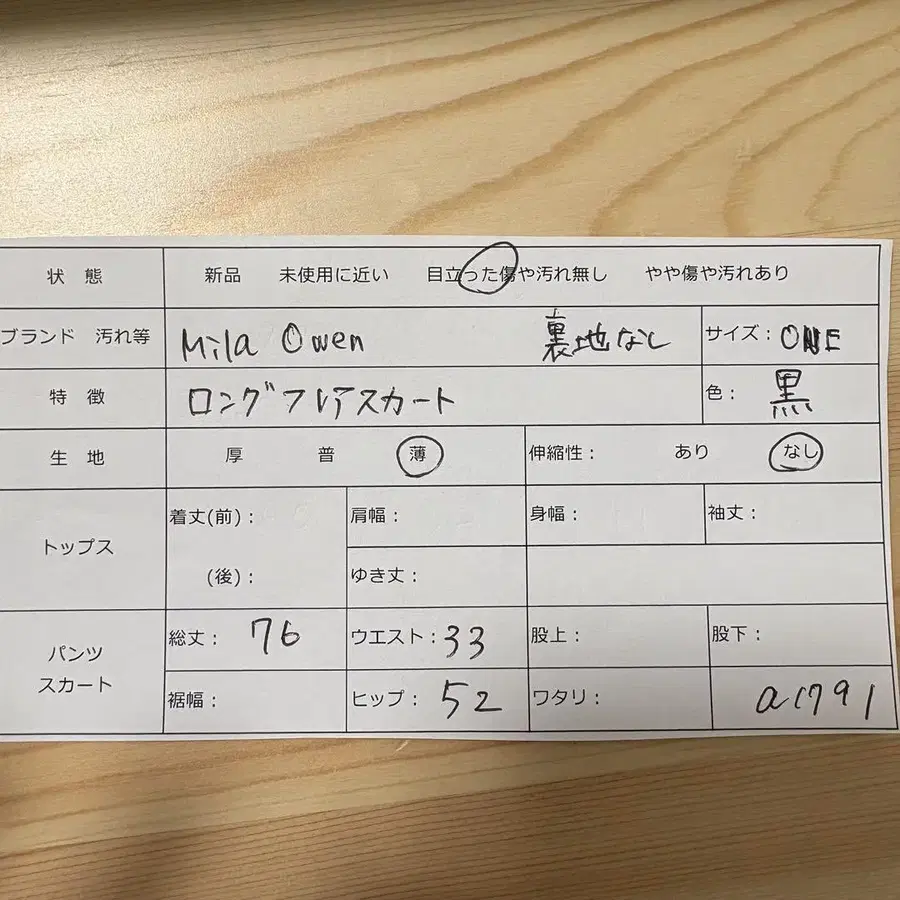 状 態 新品 未使用に近い 目立った傷や汚れ無し やや傷や汚れあり
ブランド 汚れ等 Mila Owen 裏地なし サイズ: ONE
特 徴 ロングフレアスカート 色: 黒
生 地 厚 普 薄 伸縮性: あり なし
トップス 着丈(前): 肩幅: 身幅: 袖丈:
(後): ゆき丈:
パンツ スカート 総丈: 76 ウエスト: 33 股上: 股下:
裾幅: ヒップ: 52 ワタリ: a1791